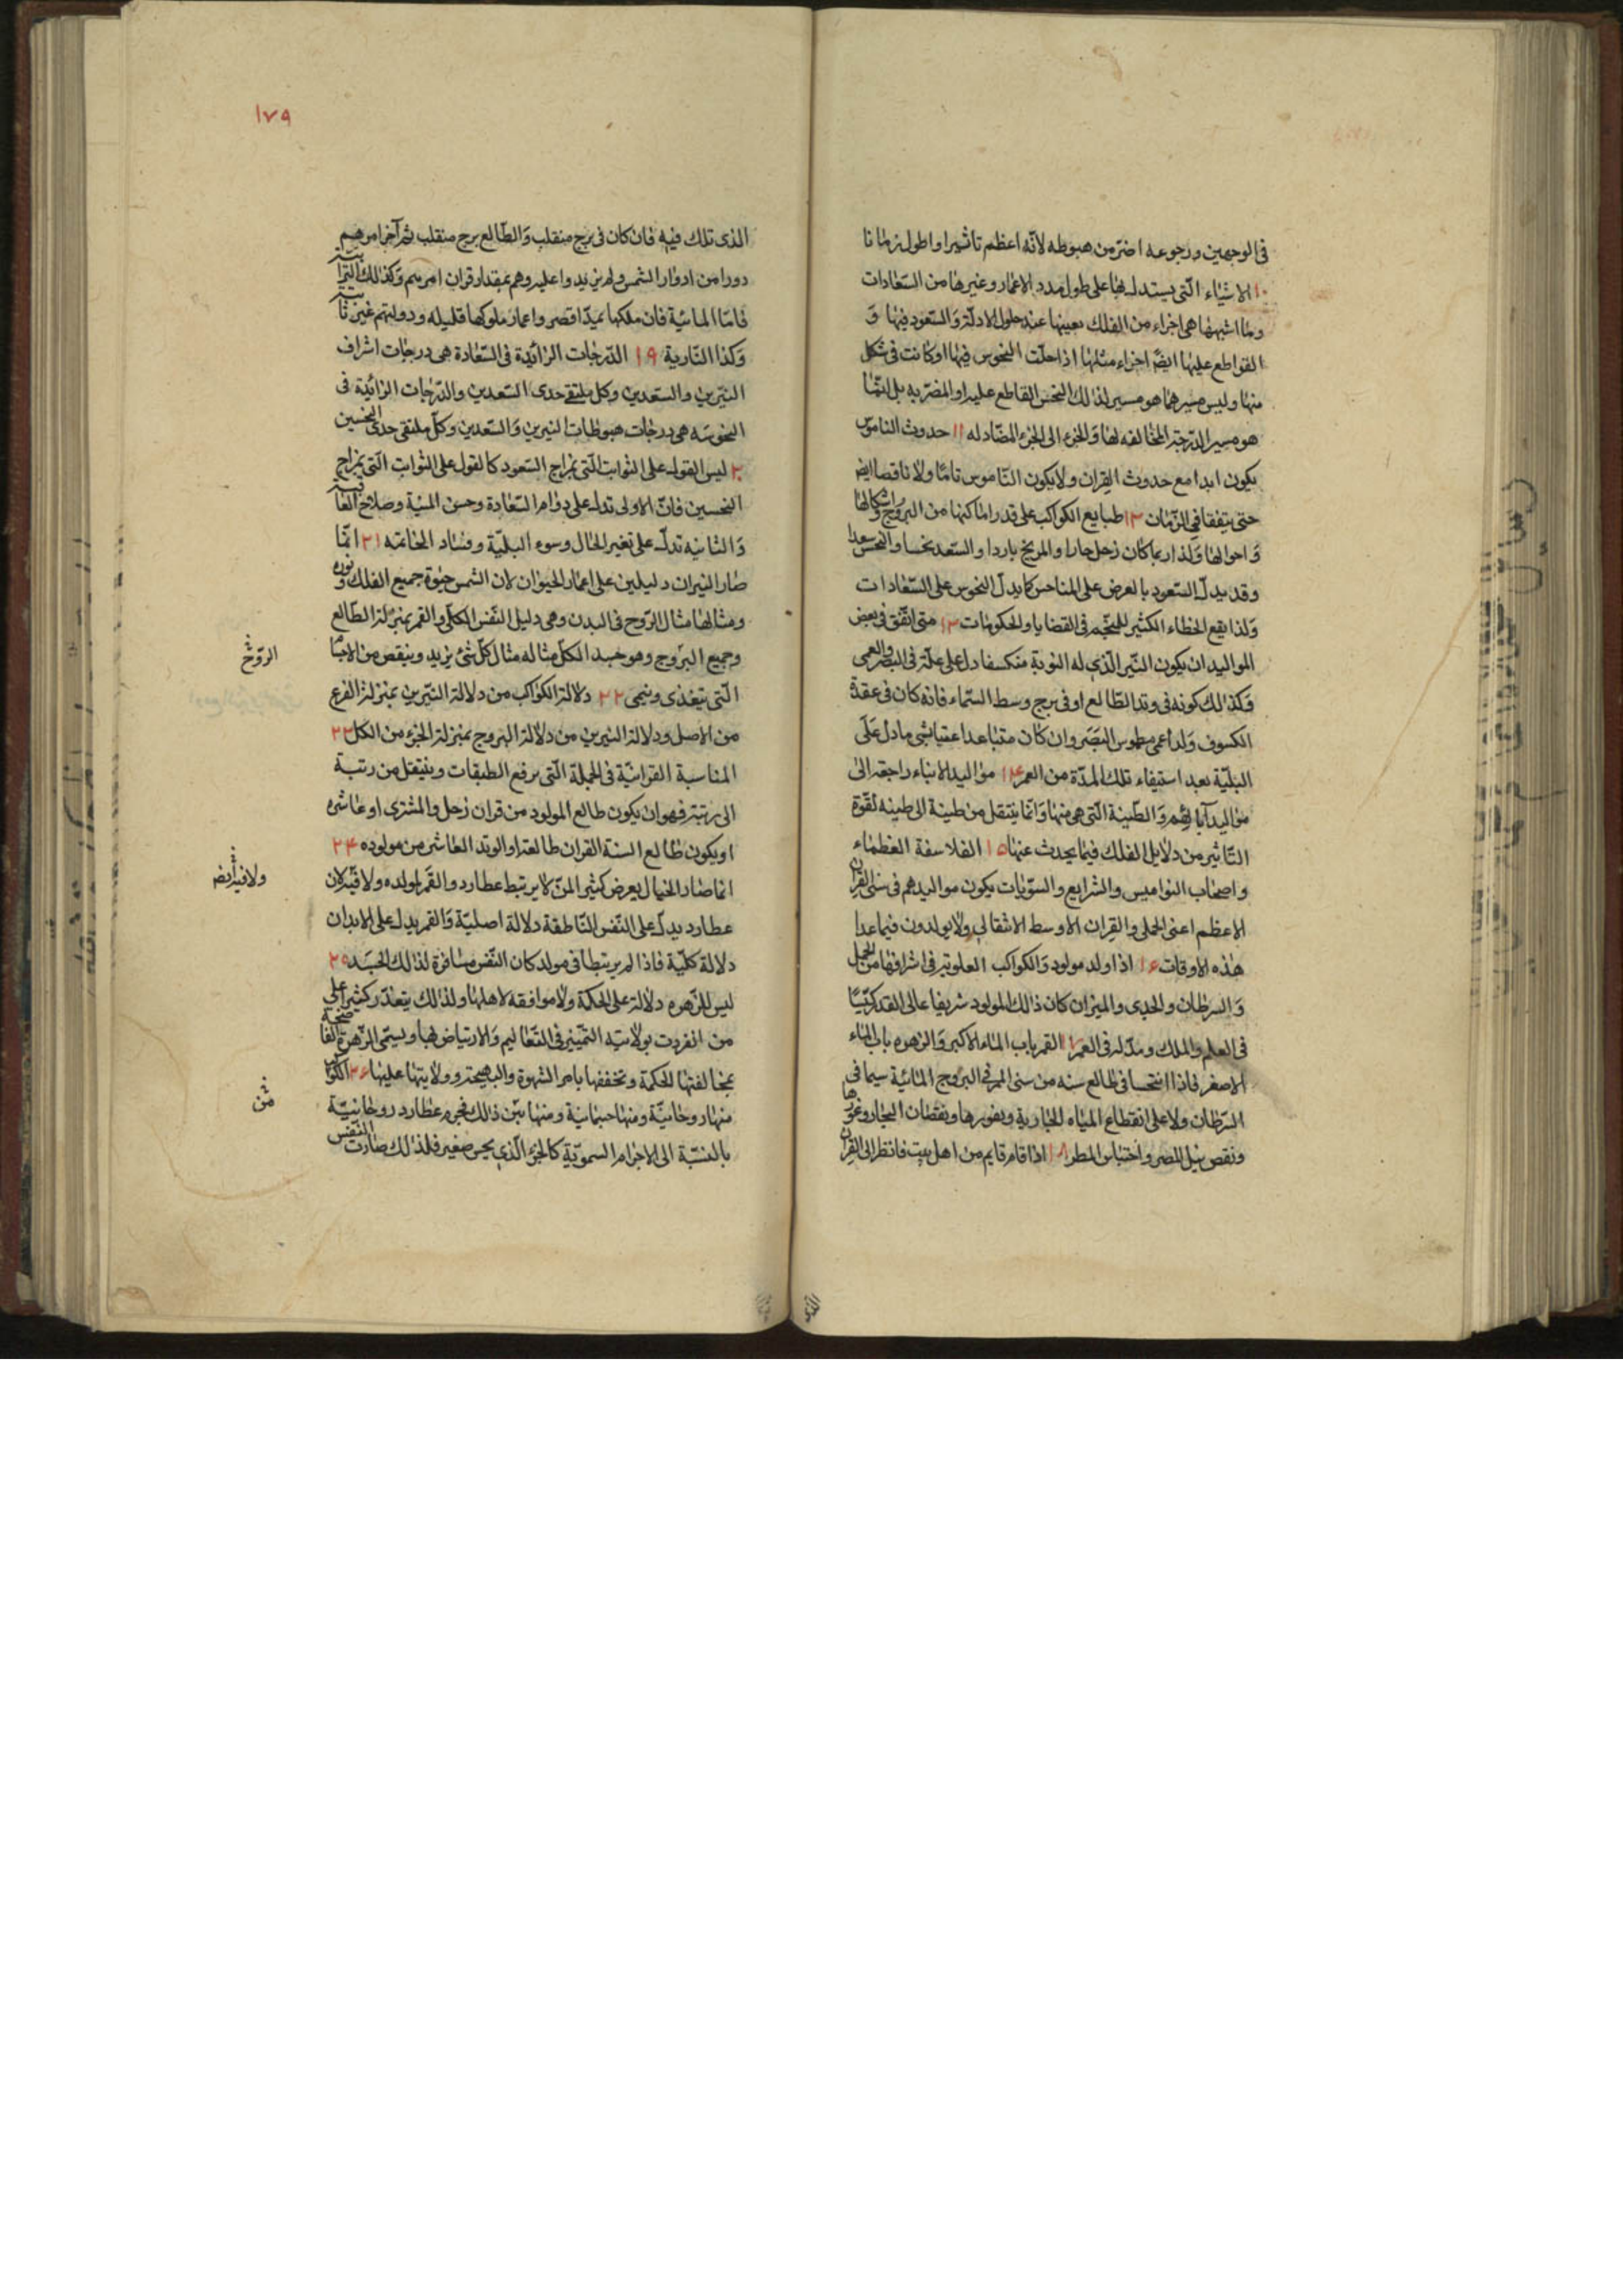 فى الوجهين ورجوعه اضرّ من هبوطه لانّه اعظم تاثيرا واطول زمانا
١٠ الاشياء الّتى يستدل بها على طول مدد الاعمار وغيرها من السّعادات
وما اشبهها هى اجزاء من الفلك بعينها عند حلول الادلّة والسّعود فيها وَ
القواطع عليها ايضً اجزاء مثلها اذا حلّت النحوس فيها او كانت فى شكل
منها وليس مسيرها هو مسير لذلك النحس القاطع عليه او المضرّ به بل انّما
هو مسير الدّرجة المخالفه لها والجزء الى الجزء المضّاد له ١١ حدوث الناموس
يكون ابدا مع حدوث القِران ولا يكون النّاموس تامّا ولا ناقصا ايض
حتى يتفقا فى الزّمان ١٢ طبايع الكواكب على قدر اماكنها من البروج واشكالها
وَاحوالها وَلذا ربما كان زحل حارا والمريخ باردا والسّعد نحسا والنحس سعدا
وقد يدلّ السّعود بالعرض على المناحس كما يدلّ النحوس على السّعادات
وَلذا يقع الخطاء الكثير للمنجّم فى القضايا والحكومات ١٣ متى اتّفق فى بعض
المواليد ان يكون النّير الّذى له النوبة منكسفا دل على علّة فى البصر والعمى
وَكذلك كونه فى وتد الطّالع او فى برج وسط السّماء فانه كان فى عقدة
الكسوف وَلد اعمى مطموس البَصَر وان كان متباعدا عنها بشى ما دل عَلَى
البليّة بعد استيفاء تلك المدّة من العمر ١٤ مواليد الابناء راجعة الى
مواليد آبائهم وَالطّينة الّتى هى منها وَانّما ينتقل من طينة الى طينه لقوّة
التّاثير من دلايل الفلك فيما يحدث عنها ١٥ الفلاسفة العظماء
واصحاب النواميس والشرايع والسوّيات يكون مواليدهم فى سنى القران
الاعظم اعنى الحملى والقِران الاوسط الانتقالى ولا يولدون فيما عدا
هذه الاوقات ١٦ اذا ولد مولود وَالكواكب العلوية فى اشرافها من الحمل
وَالسرطان والجدى والميزان كان ذلك المولود شريفا عالى القدر كبيًّا
فى العلم والملك ومدّ له فى العمر ١٧ القمر باب الماء الاكبر وَالزهره باب الماء
الاصغر فاذا انتحسا فى طالع سنه من سنى المرّ فى البروج المائية سيما فى
السّرطان ولا على انقطاع المياه الجارية وبغورها ونقصان البحار وغورها
ونقص نيل المصر واحتباس المطر ١٨ اذا قام قايم من اهل بيت فانظر الى القِران
١٧٩
الذى تلك فيه فان كان فى برج منقلب وَالطّالع برج منقلب ثم آخر امرهم
دورا من ادوار الشمس ولم يزيدوا عليه وهم بمقدار قران امرهم وَكذلك الترابية
فامّا المائيّة فان ملكها بميدّا قصر واعمار ملوكها قليله ودولتهم غير ثابتة
وَكذا النّارية ١٩ الدّرجات الزائدة فى السّعادة هى درجات اشراف
النيّرين والسّعدين وكل ملتقى حدى السّعدين والدّرجات الزائدة فى
النحوسه هى درجات هبوطات النيرين وَالسّعدين وكلّ ملتقى حدّى النحسين
٢٠ ليس القول على الثوابت الّتى بمزاج السّعود كالقول على الثوابت الّتى بمزاج
النحسين فانّ الاولى تدل على دوام السّعادة وحسن الميّة وصلاح العاقبة
وَالثانيه تدلّ على تغير الحال وسوء البليّة وفساد الخاتمه ٢١ انّما
صار النيران دليلين على اعمار الحيوان لان الشمس حيوة جميع الفلك ونوره
ومثالها مثال الرّوح فى البدن وهى دليل النّفس الكلّى والقمر بمنزلة الطّالع
وجميع البروج وهو جسد الكلّ مثاله مثال كلّ شئ يزيد وينقص من الاجسام
الّتى يتغذى وينمى ٢٢ دلالة الكواكب من دلالة النيّرين بمنزلة الفرع
من الاصل ودلالة النيرين من دلالة البروج بمنزلة الجزء من الكل ٢٣
المناسبة القرانيّة فى الجملة الّتى يرفع الطبقات وينتقل من رتبة
الى رتبة فهو ان يكون طالع المولود من قران زحل والمشترى او عاشره
او يكون طالع السنة القران طالعه او الوتد العاشر من مولوده ٢٤
انما صار الخيال يعرض كثير المنّ لا يرتبط عطارد والقَمر بمولده ولا قبّلان
عطارد يدلّ على النّفس النّاطقة دلالة اصليّة وَالقمر يدل على الابدان
دلالة كلّية فاذا لم يرتبطا فى مولد كان النّفس مسافرة لذلك الجَسَد ٢٥
ليس للزّهره دلالة على الحكمة ولا موافقه لاهلها ولذلك يتعذّر كثيرا على
من انفردت بولايته التّميّز فى التّعاليم وَالارتياض بها ويسمّى الزّهرة
بمخالفتها للحكمة وتخففها بامر الشهوة والبهيمية وولايتها عليها ٢٦ الكواكب
منها روحانيّة ومنها جسمانية ومنها بيّن ذلك فجرم عطارد روحانيّة
بالنسّبة الى الاجرام السمويّة كالجزء الّذى يحس صغير فلذلك صارت النّفس
الرّوح
ولافيه ايض
من